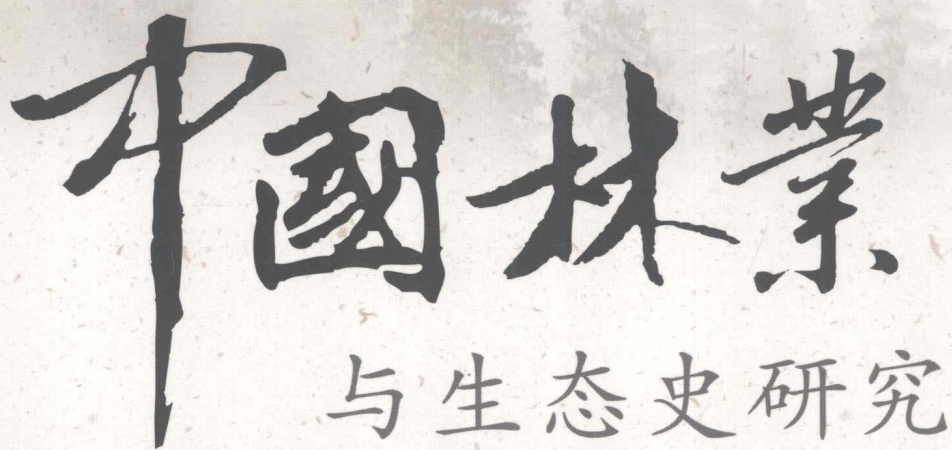 中國林業
与生态史研究